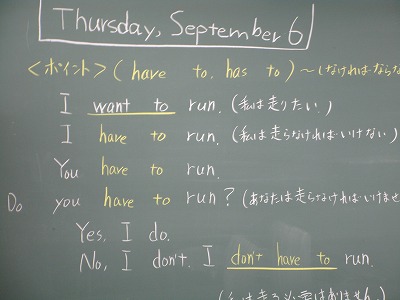 Thursday, September 6
<ポイント> (have to, has to) ～(しなければならな
I want to run. (私は走りたい。)
I have to run. (私は走らなければいけない)
You have to run.
Do you have to run? (あなたは走らなければいけませ
Yes, I do.
No, I don't. I don't have to run.